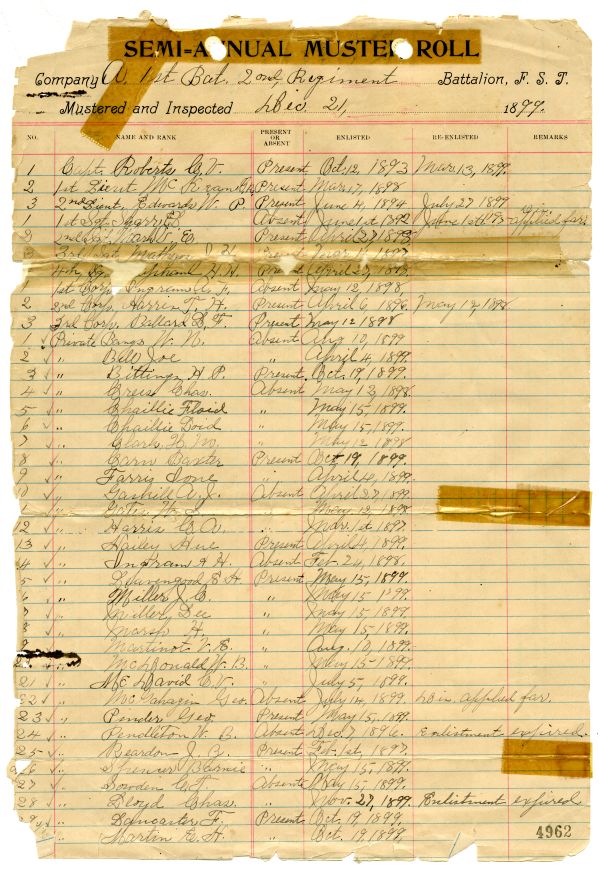 SEMI-ANNUAL MUSTER ROLL
Company A. 1st Bat. 2nd, Regiment Battalion, F. S. T.
Mustered and Inspected Dec. 21, 1899.
NO. NAME AND RANK PRESENT OR ABSENT ENLISTED RE-ENLISTED REMARKS
1 Capt. Roberts C. V. Present Oct. 12, 1893 Mar. 13, 1899.
2 1st Lieut. Present Mar. 17, 1898
3 2nd Lieut. Edwards W. P. Present June 4, 1894 July 27 1899
1 1st Sgt. Absent June 1st applied for.
2 2nd Sgt. Present April 27,
3 3rd Sgt. Present
4th Sg. H. H. Present April 27,
1st Corp. Ingram A. F. Absent May 12, 1898
2 2nd Corp. Harris T. H. Present April 6 1896 May 12, 1898
3 3rd Corp. Ballard Present May 12 1898
1 Private Bangs W. N. Absent Aug 10, 1899
2 " Bell Joe " April 4, 1899.
3 " Bitting H. P. Present Oct. 19, 1899.
4 " Chas. Absent May 12, 1898.
5 " Chaillie Floid " May 15, 1899.
6 " Chaillie Doid " May 15, 1899.
7 " Clark H. M. " May 12 1898
8 " Carn Baxter Present Oct 19, 1899.
9 " Farry " April 4, 1899.
10 " Absent April 27, 1899
" " May 12, 1898
12 " Harris C. A. " Mar. 1st 1897.
13 " Hailey Present April 4, 1899.
4 " Ingram H. Absent Feb. 24, 1898.
5 " Livengood E. H. Present May 15, 1899.
" Miller J. C. " May 15 1899
" Miller, Dee " May 15, 1899
" H " May 15, 1899.
" Martinot V. E. " Aug. 10, 1899.
" McDonald W. B. " May 15, 1899.
21 " McDavid C. V. " July 5, 1899.
22 " Geo. Absent July 14, 1899. Dis. applied for.
23 " Ponder Geo. Present May 15, 1899.
24 " Pendleton W. B. Absent Dec. 7, 1896. Enlistment expired.
25 " Reardon J. B. Present Feb. 1st, 1897.
26 " Spencer " May 15, 1899.
27 " Sowden C. T. Absent May 15, 1899.
28 " Floyd Chas. " Nov. 27, 1899. Enlistment expired
" Lancaster F. Present Oct. 19, 1899.
" Martin " Oct. 19, 1899.
4962